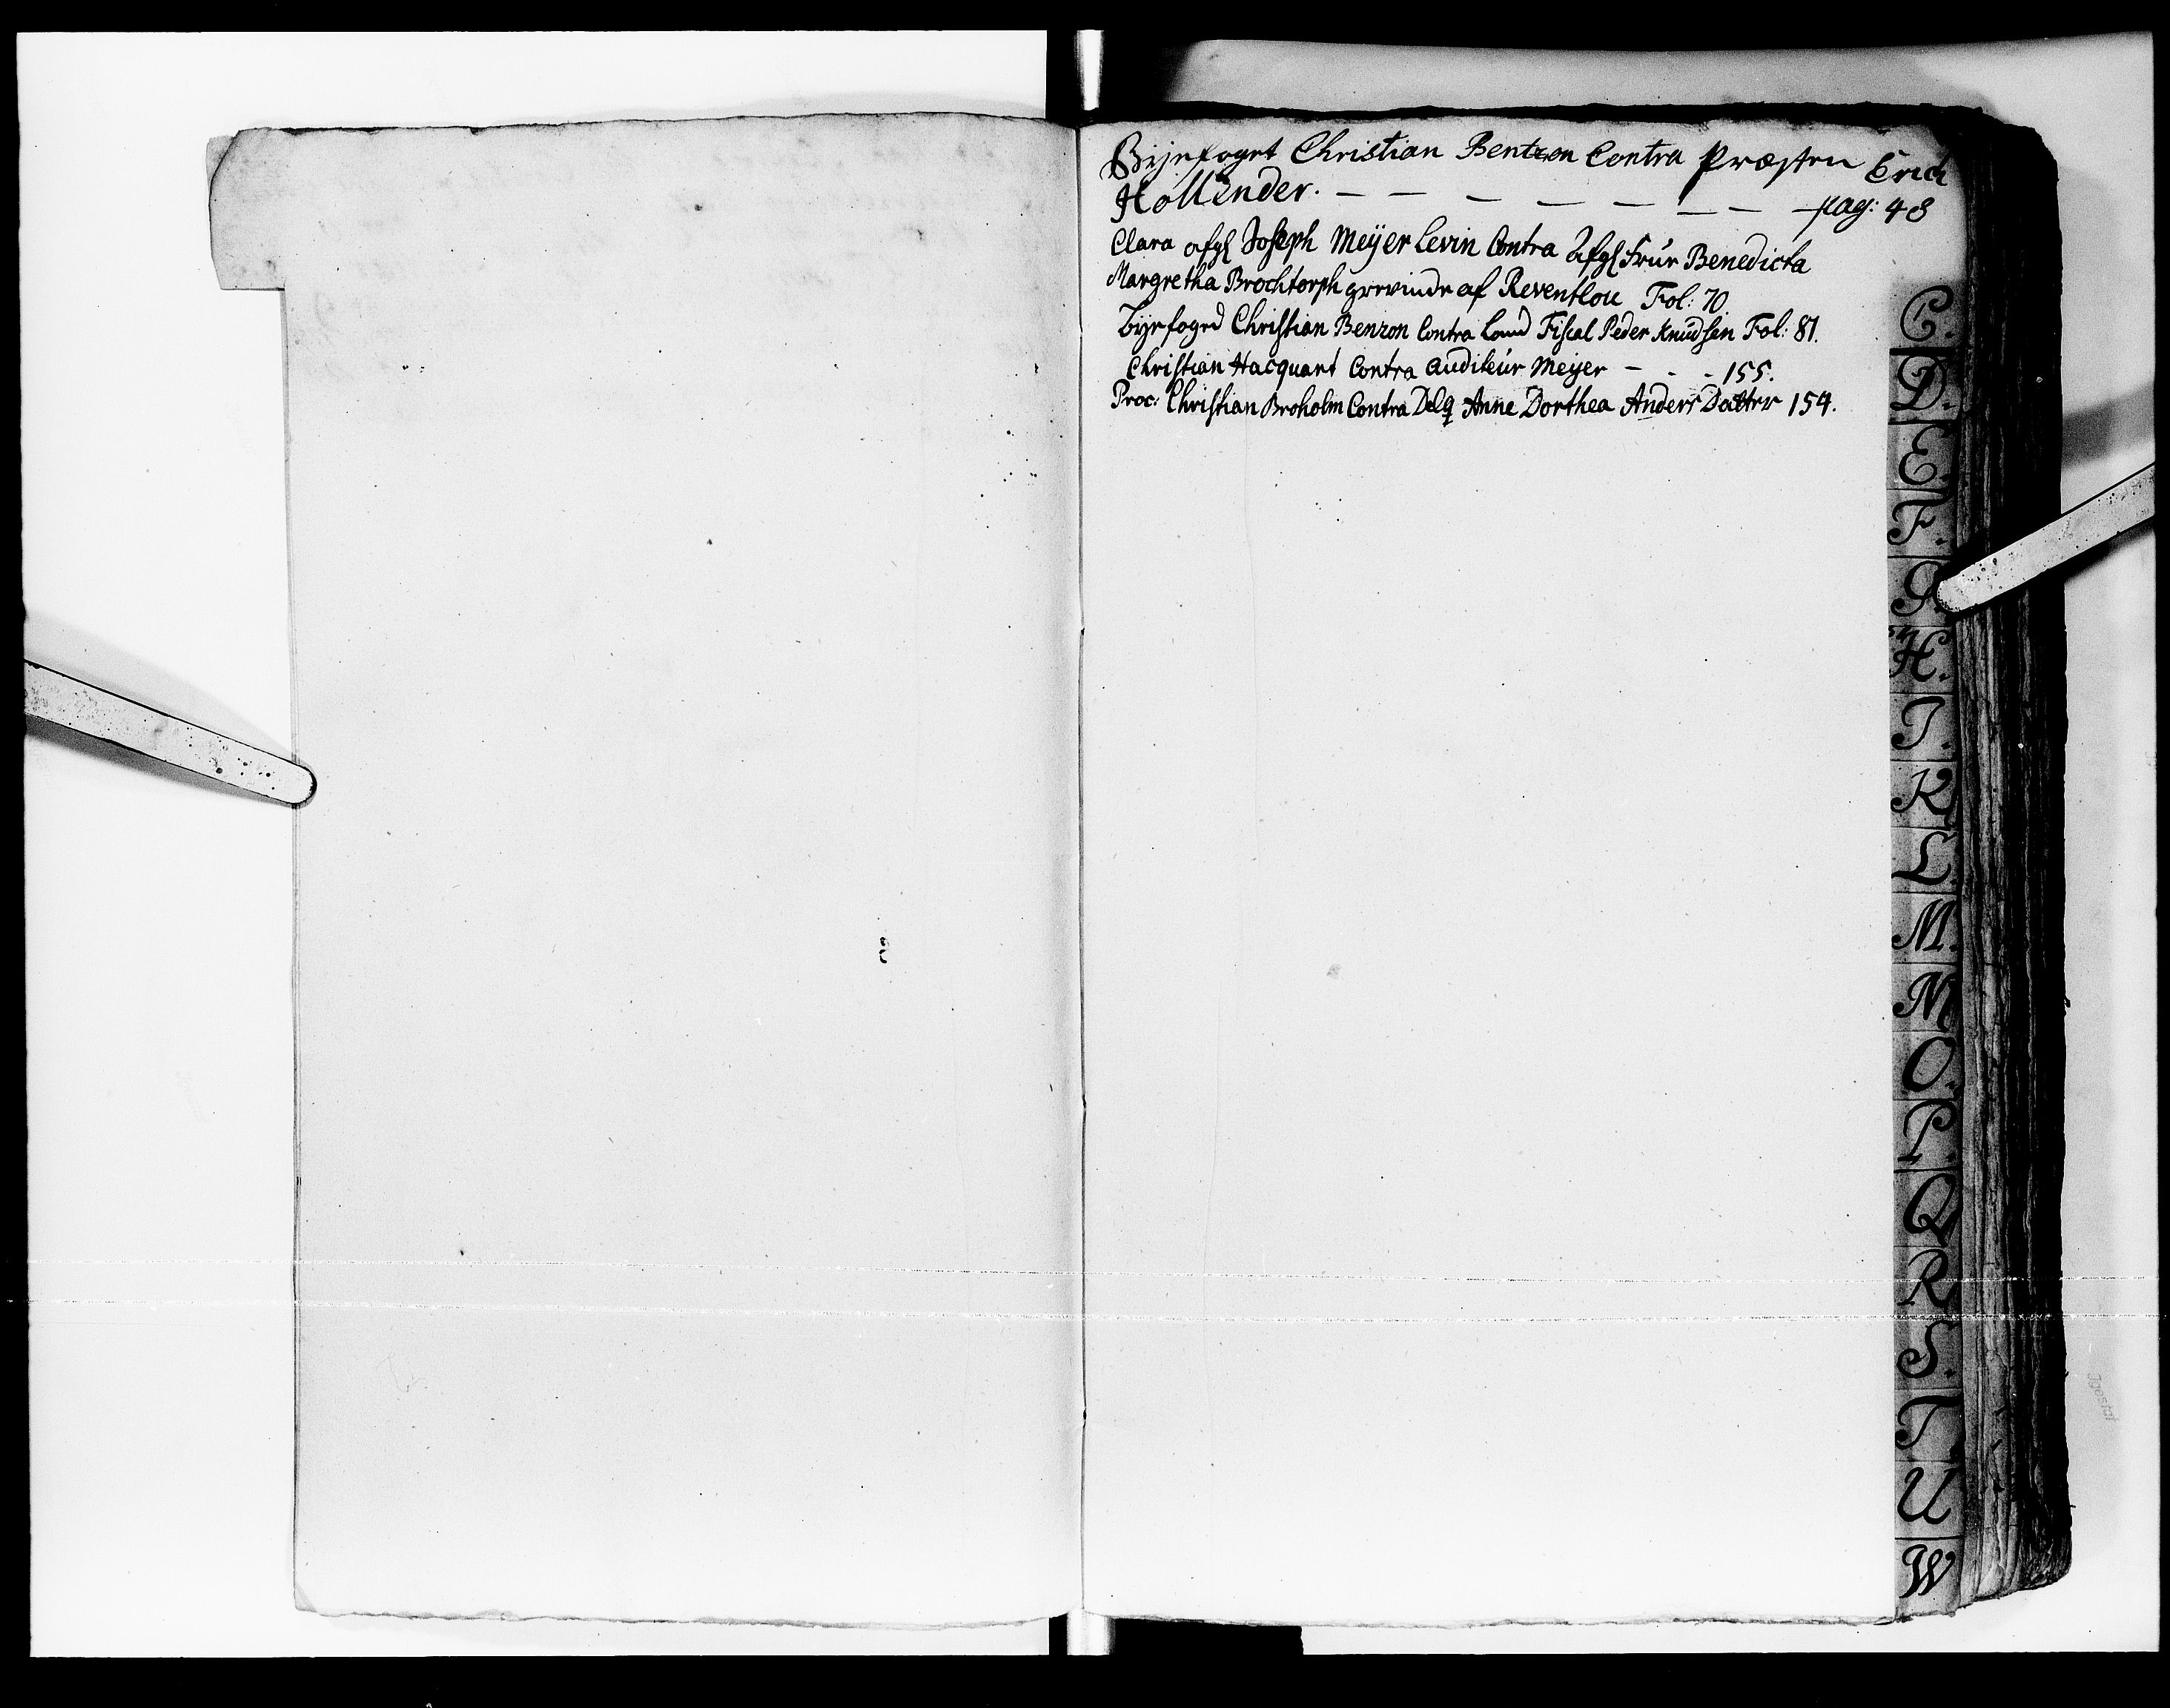 Byefoget Christian Bentzon Contra Præsten Erich
Hollender. — — — — — — — — pag: 48
Clara afgl Joseph Meyer Levin Contra Afgl Frür Benedicta
Margretha Brochtorph grevinde af Reventlou Fol: 70
Byefoged Christian Benzon Contra Land Fiscal Peder Knudsen Fol: 81.
Christian Hacquart Contra Auditeür Meyer - - - 155.
Proc: Christian Broholm Contra Delq Anne Dorthea Anders Datter 154.
C.
D.
E.
F.
G.
H.
I.
K.
L.
M.
N
O.
P.
Q
R
S.
T
U
W